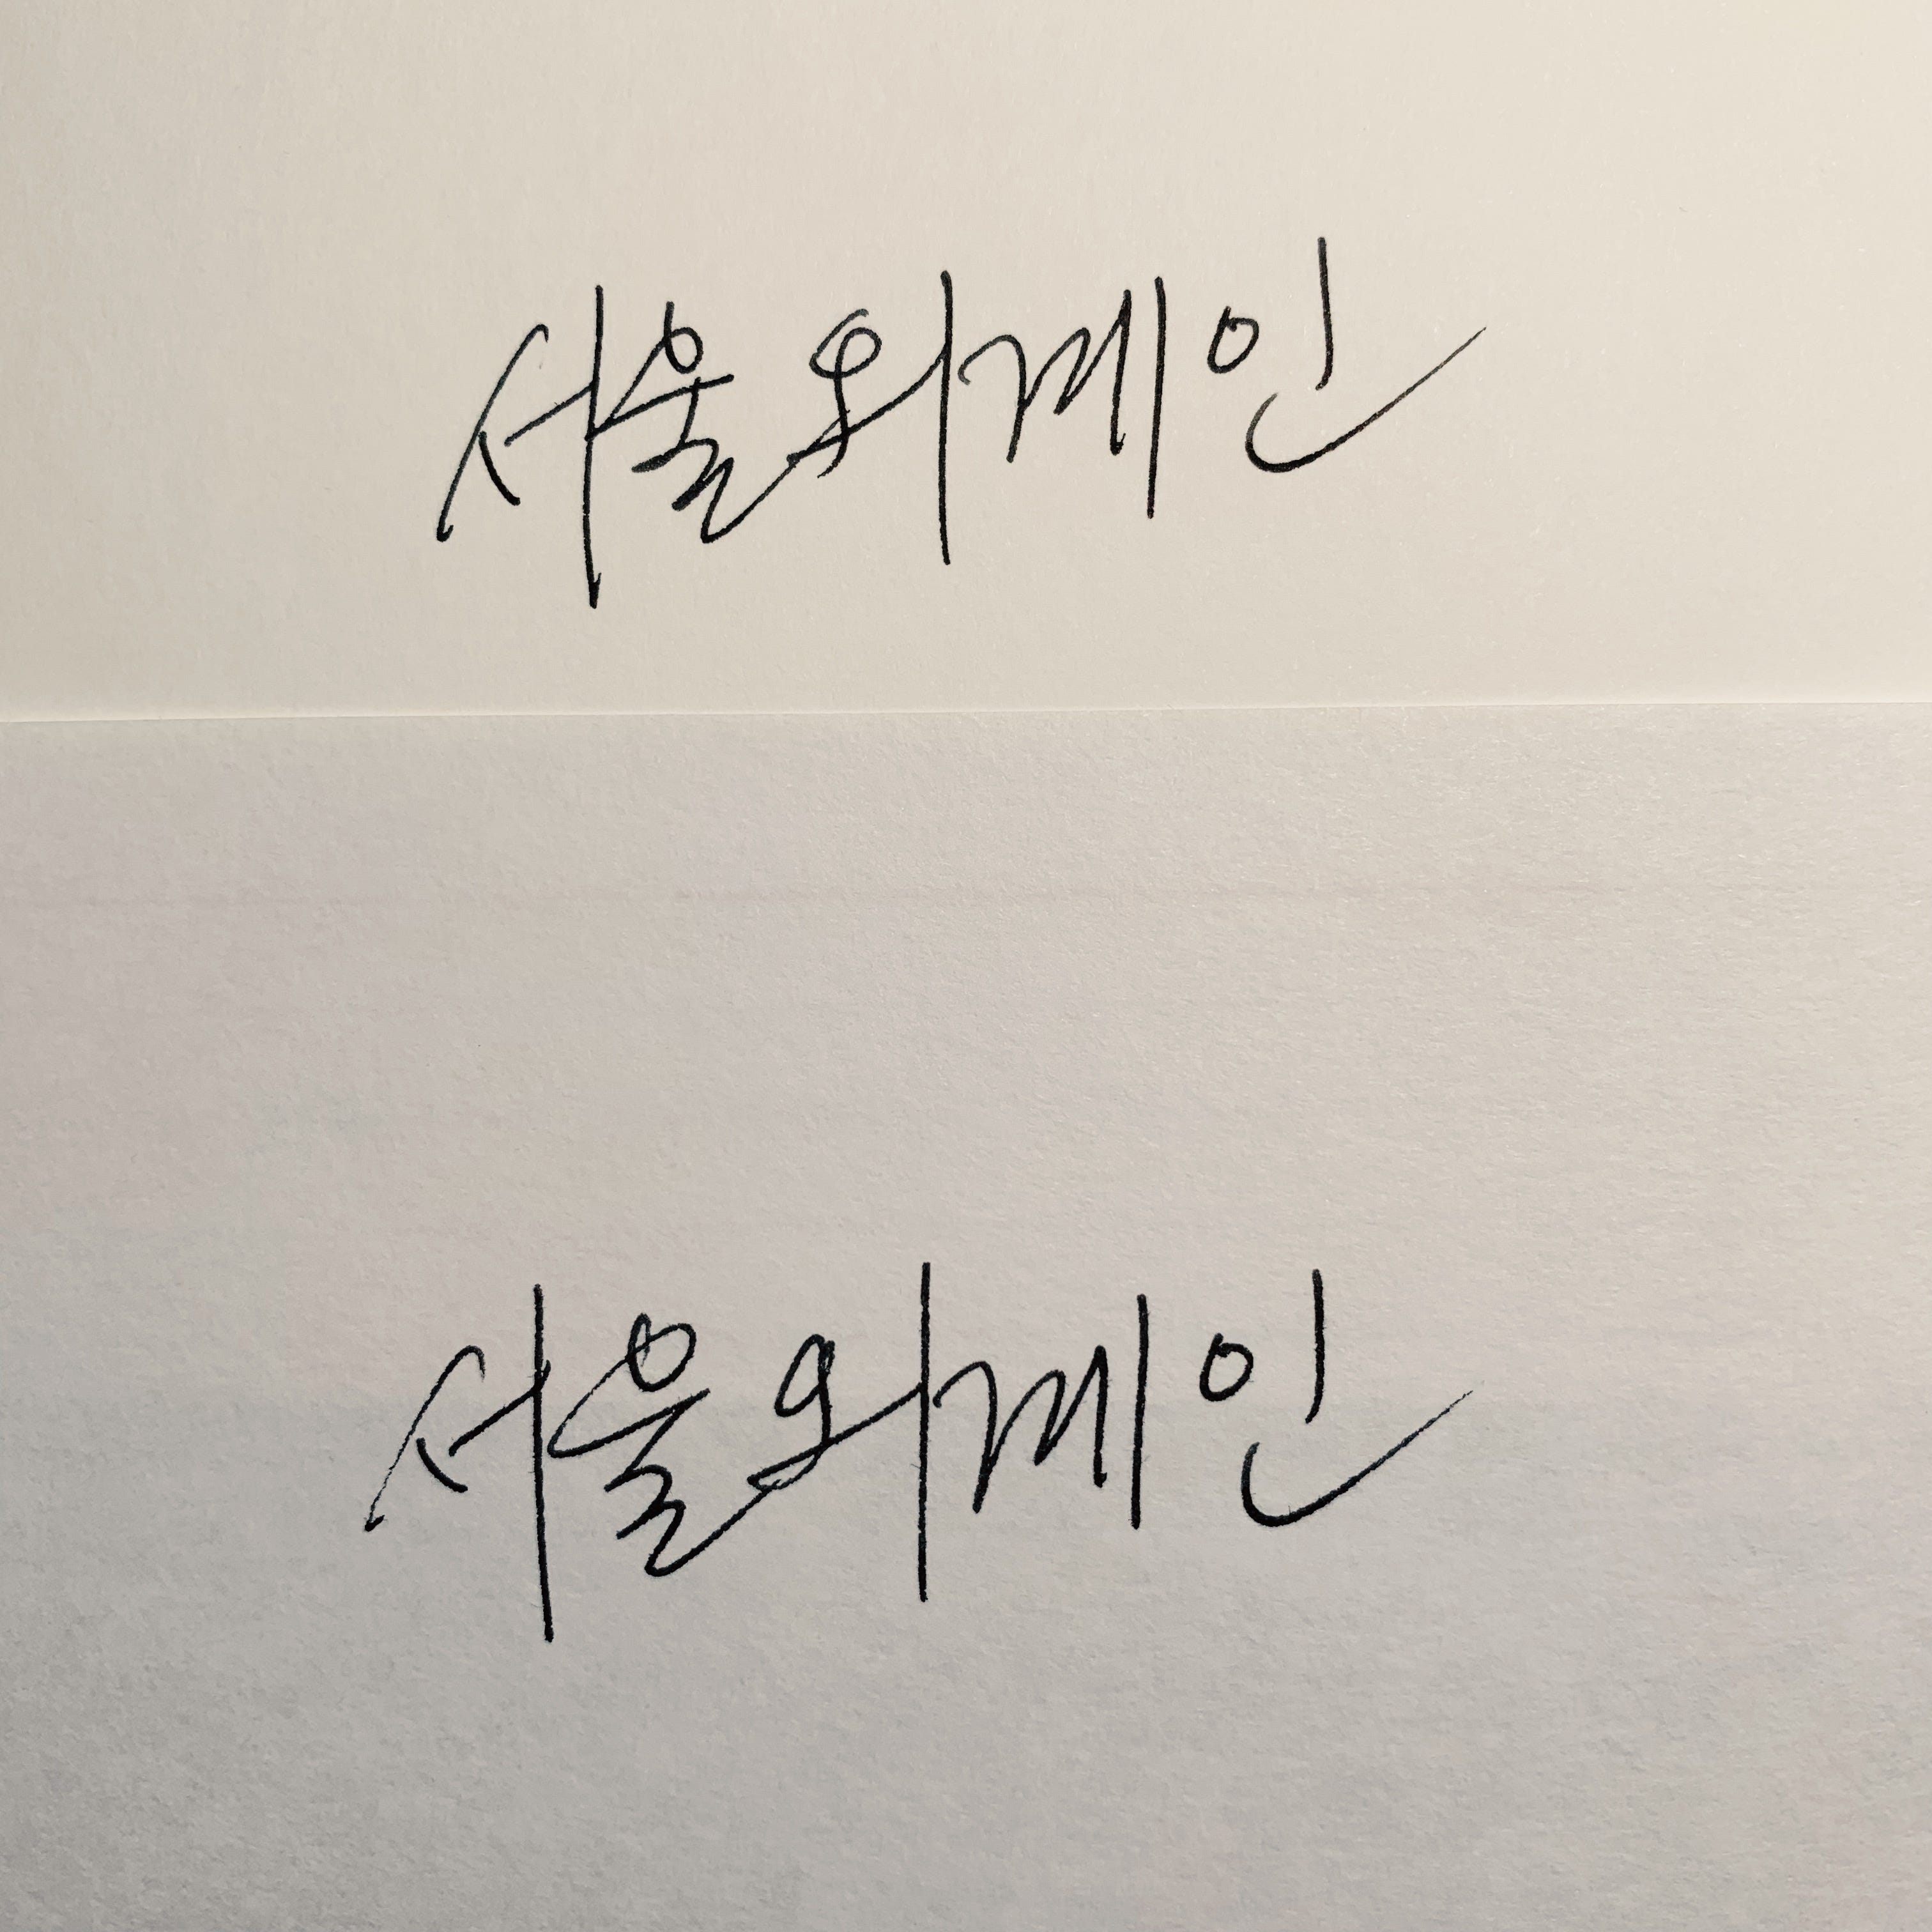 서울외계인
서울외계인